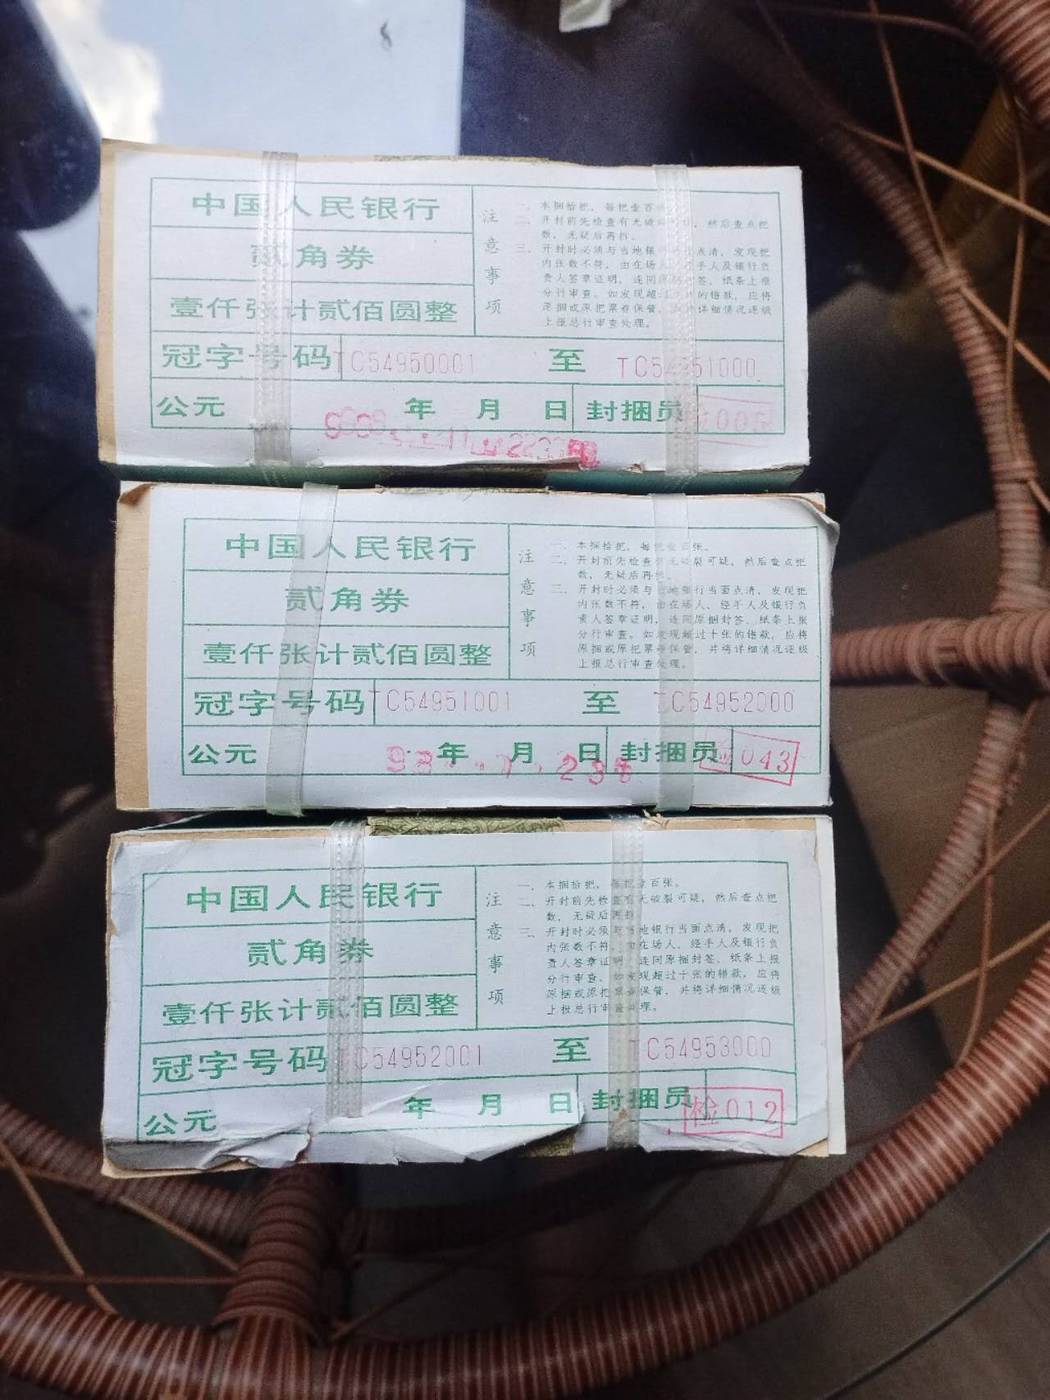 中国人民银行
贰角券
壹仟张计贰佰圆整
注意事项
一、本捆拾把，每把壹百
二、开封前先检查有无破 ，然后查点把
数，无疑后再拆。
三、开封时必须与当地银 点清，发现把
内张数不符，由在场 手人及银行负
责人签章证明，连同原 签、纸条上报
分行审查。如发现超 的错款，应将
原捆或原把票券保管， 详细情况逐级
上报总行审查处理。
冠字号码 TC54950001 至 TC54951000
公元 年 月 日 封捆员
中国人民银行
贰角券
壹仟张计贰佰圆整
注意事项
一、本捆拾把，每把壹百张。
二、开封前先检查有无破裂可疑，然后查点把
数，无疑后再拆。
三、开封时必须与当地银行当面点清，发现把
内张数不符，由在场人、经手人及银行负
责人签章证明，连同原捆封签、纸条上报
分行审查。如发现超过十张的错款，应将
原捆或原把票券保管，并将详细情况逐级
上报总行审查处理。
冠字号码 TC54951001 至 TC54952000
公元 年 月 日 封捆员 043
中国人民银行
贰角券
壹仟张计贰佰圆整
注意事项
一、本捆拾把，每把壹百张。
二、开封前先检查有无破裂可疑，然后查点把
数，无疑后再拆。
三、开封时必须与当地银行当面点清，发现把
内张数不符，由在场人、经手人及银行负
责人签章证明，连同原捆封签、纸条上报
分行审查。如发现超过十张的错款，应将
原捆或原把票券保管，并将详细情况逐级
上报总行审查处理。
冠字号码 TC54952001 至 TC54953000
公元 年 月 日 封捆员 检012